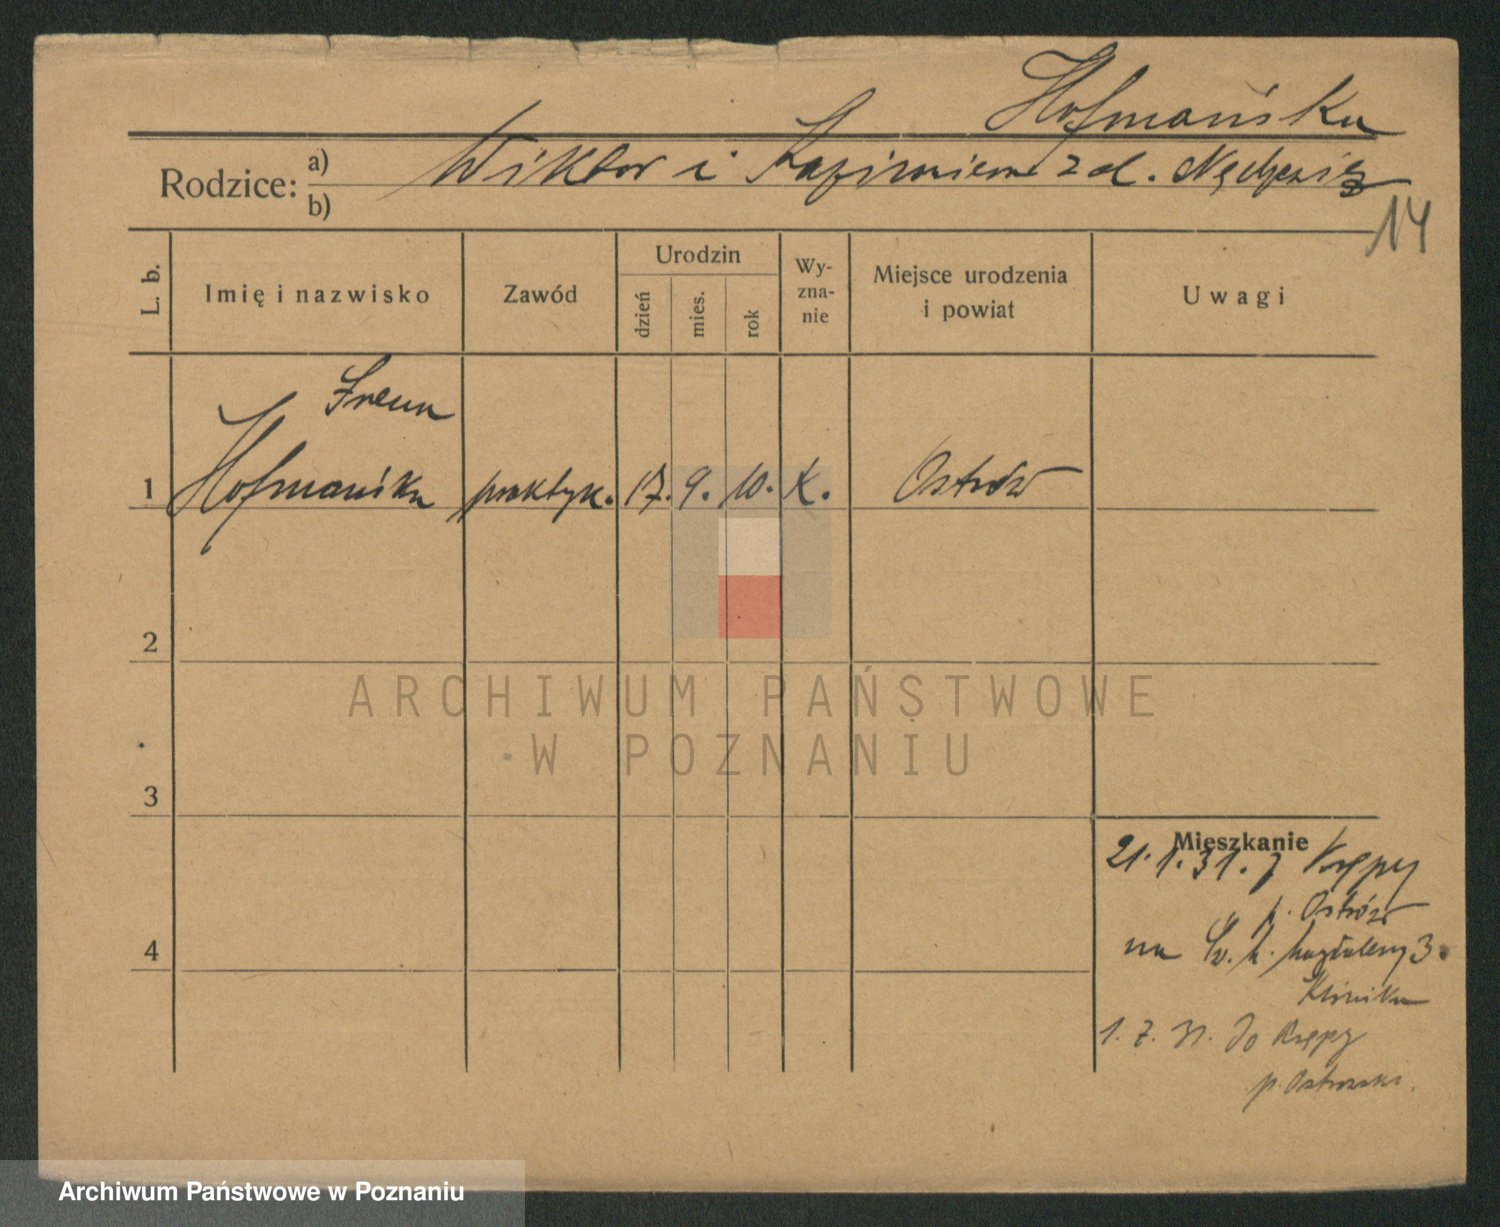 Hofmańska
Rodzice: a) Wiktor i Kazimiera z d.
b)
14
L. b.
Imię i nazwisko
Zawód
Urodzin
dzień
mies.
rok
Wy-
zna-
nie
Miejsce urodzenia
i powiat
Uwagi
Irena
1 Hofmańska praktyk. 17. 9. 10. k. Ostrów
2
ARCHIWUM PAŃSTWOWE
W POZNANIU
3
Mieszkanie
21.1.31. z Krępy
p. Ostrów
4
na Św. M. Magdaleny 3.
Klinika
1. 7. 31. do Krępy
p. Ostrowski.
Archiwum Państwowe w Poznaniu